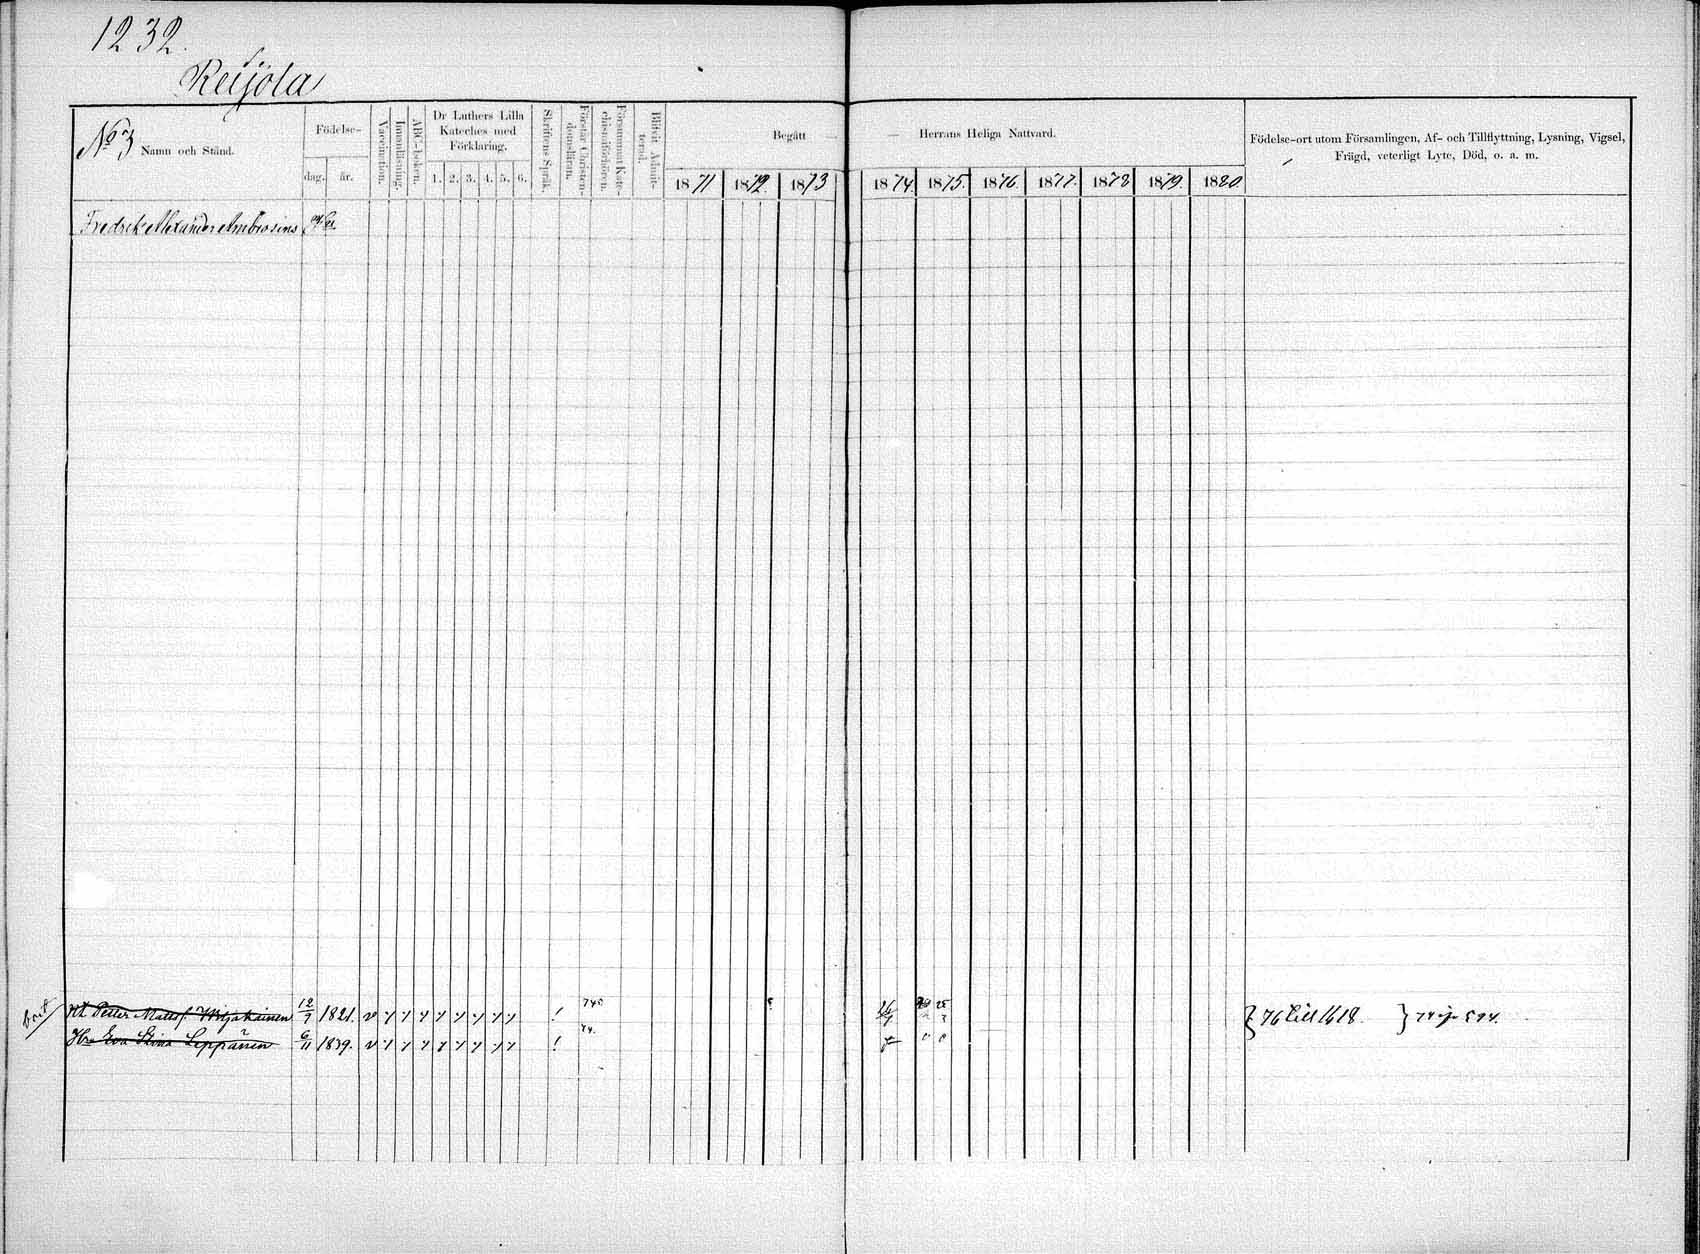 1232.
Reijola
No 3 Namn och Stånd.
Födelse-
dag. år.
Vaccination.
Innanläsning.
ABC-boken.
Dr Luthers Lilla
Kateches med
Förklaring.
1. 2. 3. 4. 5. 6.
Skriftens Språk.
Förstår Christen-
domsläran.
Försummat Kate-
chismiförhören.
Blifvit Admit-
terad.
Begått — — Herrans Heliga Nattvard.
1871 1872 1873 1874. 1875. 1876. 1877. 1878 1879. 1880.
Födelse-ort utom Församlingen, Af- och Tillflyttning, Lysning, Vigsel,
Frägd, veterligt Lyte, Död, o. a. m.
Fredrik Alexander Ambrosius
bort
Petter Matts. 12/7 1821. 76 till 1618. 74 594.
Hu Eva Stina Leppänen 6/11 1839. 74.